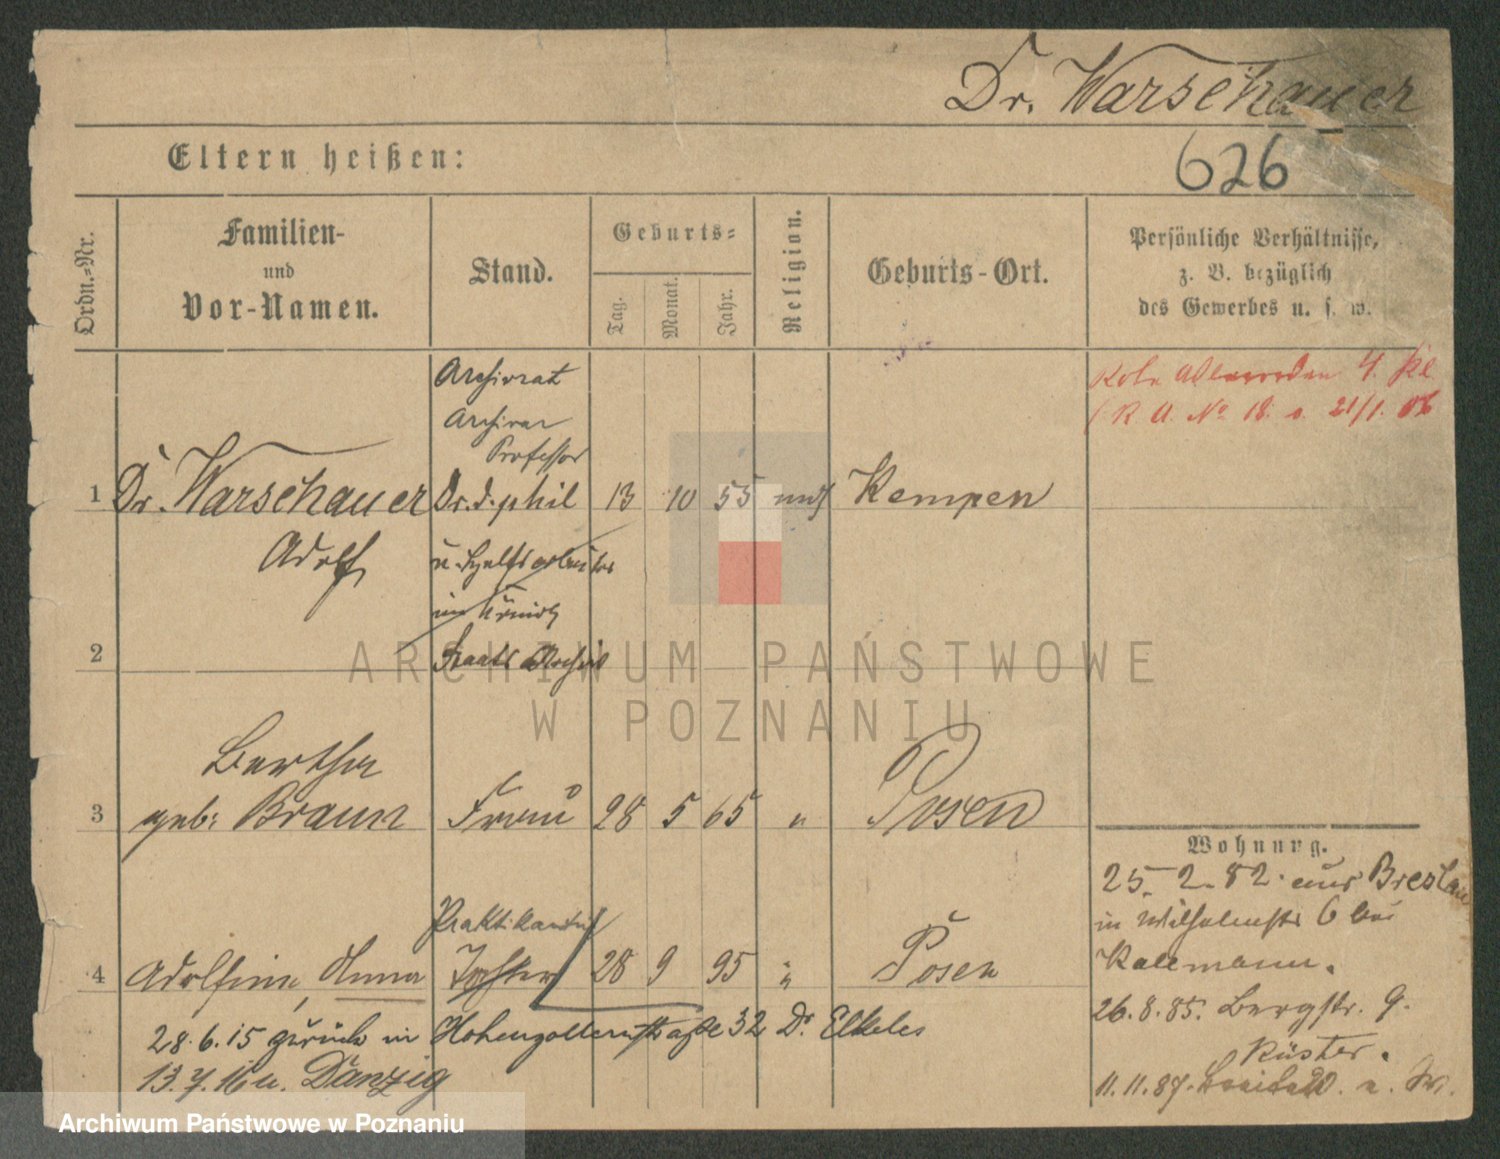 Dr. Warschauer
Eltern heißen:
626
Ordn.-Nr.
Familien-
und
Vor-Namen.
Stand.
Geburts-
Tag.
Monat.
Jahr.
Religion.
Geburts-Ort.
Persönliche Verhältnisse,
z. B. bezüglich
des Gewerbes u. s. w.
Archivrat
Archivar
Professor
4. Kl
No 18. v. 21/1. 06
1 Dr. Warschauer Dr. d. phil 13 10 55 Kempen
Adolf
u. Hülfsarbeiter
im Königl
2 Staats Archiv
ARCHIWUM PAŃSTWOWE
W POZNANIU
Bertha
3 geb: Braun Frau 28 5 65 " Posen
Wohnung.
25. 2. 82. aus Breslau
in Wilhelmstr 6 bei
Praktikantin
4 Adolfine, Anna Tochter 28 9 95 " Posen
26. 8. 85. Bergstr. 9.
28. 6. 15 zurück in Hohenzollernstraße 32 Dr. Elkeles
Küster.
13. 7. 16 u. Danzig
11. 11. 87.
Archiwum Państwowe w Poznaniu